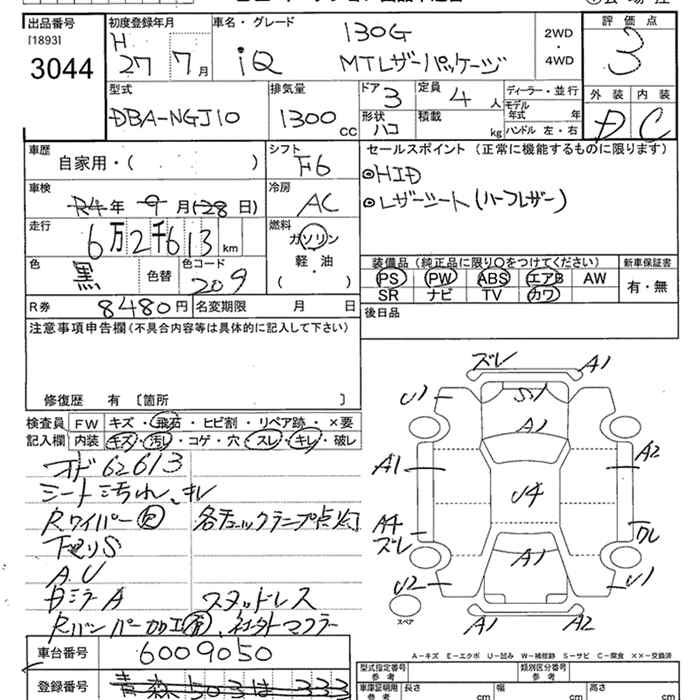 出品番号
[1893]
3044
初度登録年月
H
27 7月
車名・グレード
iQ
130G
MTレザーパッケージ
2WD
・
4WD
評価点
3
外装 内装
D C
型式
DBA-NGJ10
排気量
1300cc
ドア
3
定員
4人
形状
ハコ
積載
kg
ディーラー・並行
モデル年式 年
ハンドル 左・右
車歴
自家用・( )
シフト
F6
車検
R4年 9月(28日)
冷房
AC
走行
6万2千613km
燃料
ガソリン
軽・油
( )
色
黒
色替
色コード
209
R券
8480円
名変期限 月 日
セールスポイント(正常に機能するものに限ります)
◎HID
◎レザーシート(ハーフレザー)
装備品(純正品に限り○をつけてください)
PS PW ABS エアB AW
SR ナビ TV カワ
新車保証書
有・無
後日品
注意事項申告欄(不具合内容等は具体的に記入して下さい)
修復歴 有 [箇所 ]
検査員記入欄
FW キズ・飛石・ヒビ割・リペア跡・×要
内装 キズ・汚レ・コゲ・穴・スレ・キレ・破レ
オド62613
シート汚れ、キレ
Rワイパー 各チェックランプ点灯
下廻りS
A.U
カミラA スタッドレス
Rバンパー加工有、社外マフラー
車台番号
6009050
登録番号
青森503は333
ズレ A1
U1 S1
A1
A1 A2
U4
A4
ズレ ワレ
A1
U2 U1
スペア
A1 A2
A-キズ E-エクボ U-凹み W-補修跡 S-サビ C-腐食 XX-交換済
型式指定番号
参考
類別区分番号
参考
車庫証明用
参考
長さ cm
幅 cm
高さ cm